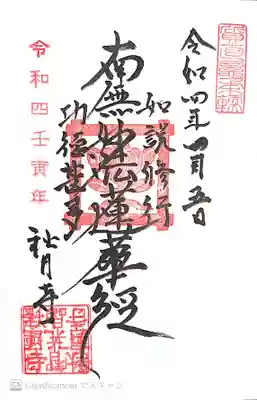 令和四年四月五日
如説修行
南無妙法蓮華経
功徳甚多
令和四壬寅年
CamScanner でスキャン